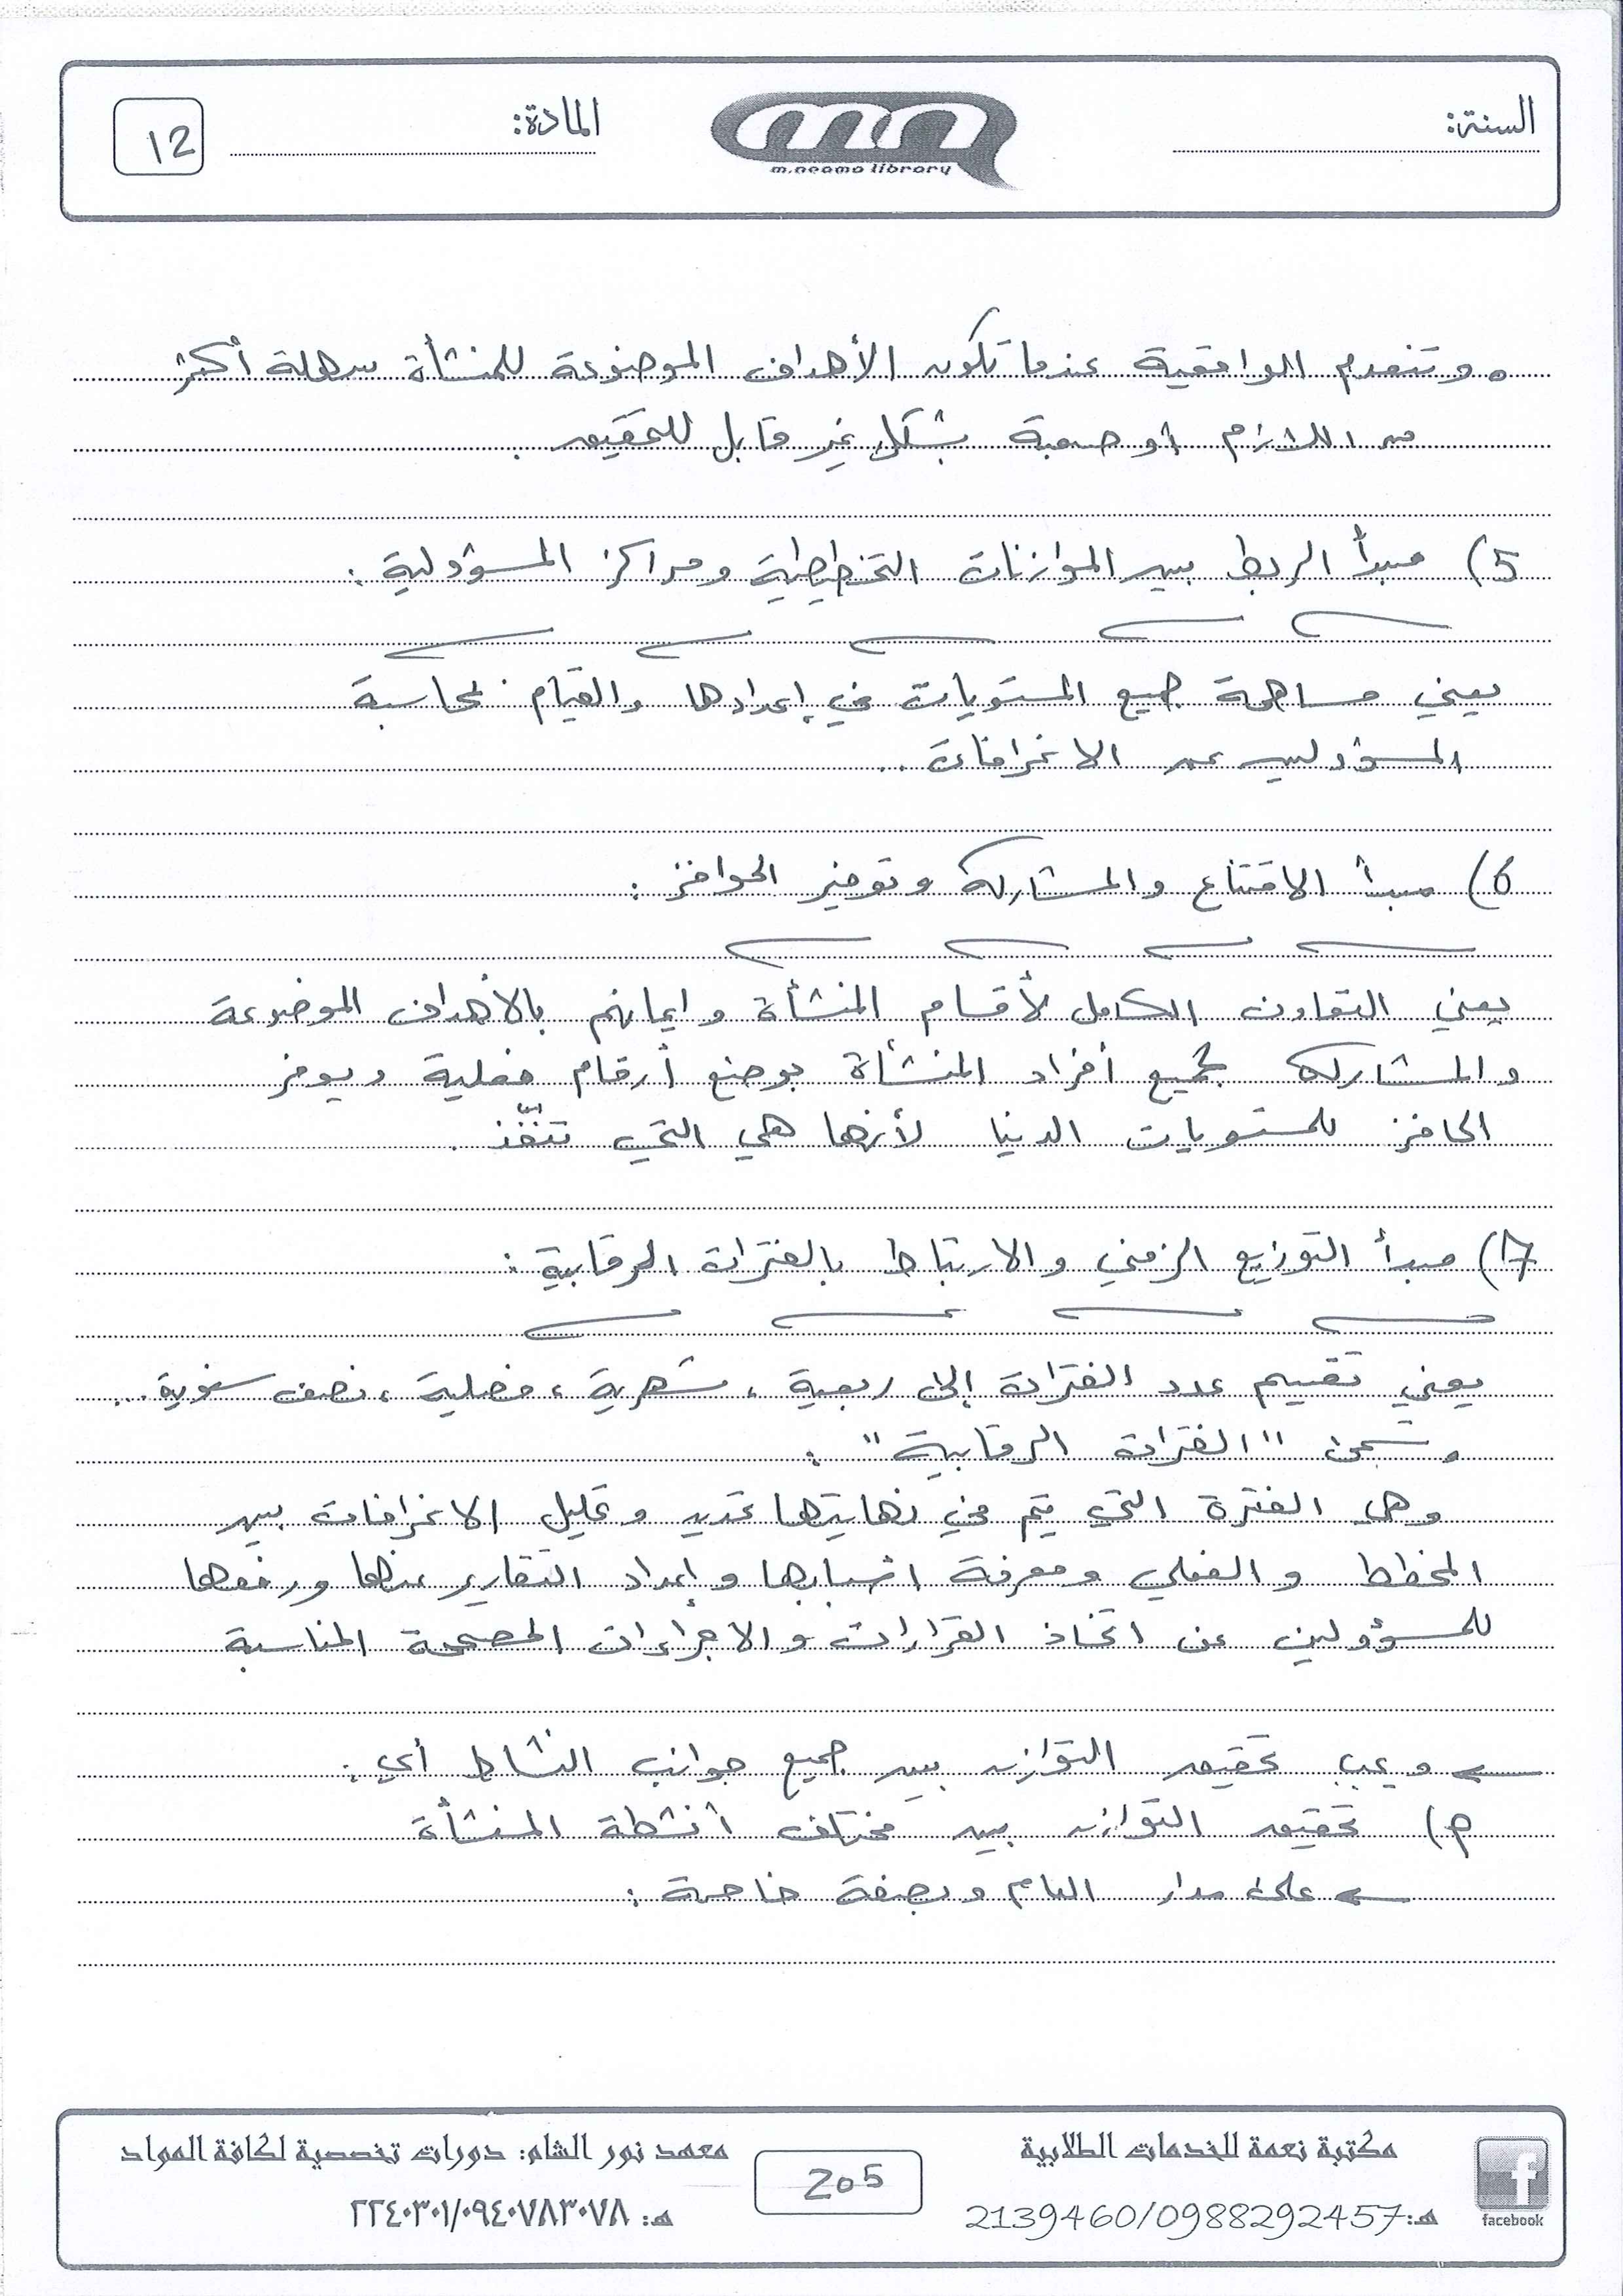 السنة:
m.neama library
المادة:
12
• وتنعدم الواقعية عندما تكون الأهداف الموضوعة للمنشأة سهلة أكثر
من اللازم أو صعبة بشكل غير قابل للتحقيق.
5) مبدأ الربط بين الموازنات التخطيطية ومراكز المسؤولية:
يعني مساهمة جميع المستويات في إعدادها والقيام بمحاسبة
المسؤولين عن الانحرافات..
6) مبدأ الاقتناع والمشاركة وتوفير الحوافز:
يعني التعاون الكامل لأقسام المنشأة وإيمانهم بالأهداف الموضوعة
والمشاركة لجميع أفراد المنشأة بوضع أرقام فعلية ويوفر
الحافز للمستويات الدنيا لأنها هي التي تنفّذ.
7) مبدأ التوزيع الزمني والارتباط بالفترات الرقابية:
يعني تقسيم عدد الفترات إلى ربعية، شهرية، فصلية، نصف سنوية...
وتسمى "الفترات الرقابية":
وهي الفترة التي يتم في نهايتها تحديد وتحليل الانحرافات بين
المخطط والفعلي ومعرفة اسبابها وإعداد التقارير عنها ورفعها
للمسؤولين عن اتخاذ القرارات والاجراءات المصححة المناسبة
← ويجب تحقيق التوازن بين جميع جوانب النشاط أي:
م) تحقيق التوازن بين مختلف أنشطة المنشأة
← على مدار العام وبصفة خاصة:
مكتبة نعمة للخدمات الطلابية
هـ:2139460/0988292457
facebook
205
معهد نور الشام: دورات تخصصية لكافة المواد
هـ: ٢٢٤٠٣٠١/٠٩٤٠٧٨٣٠٧٨